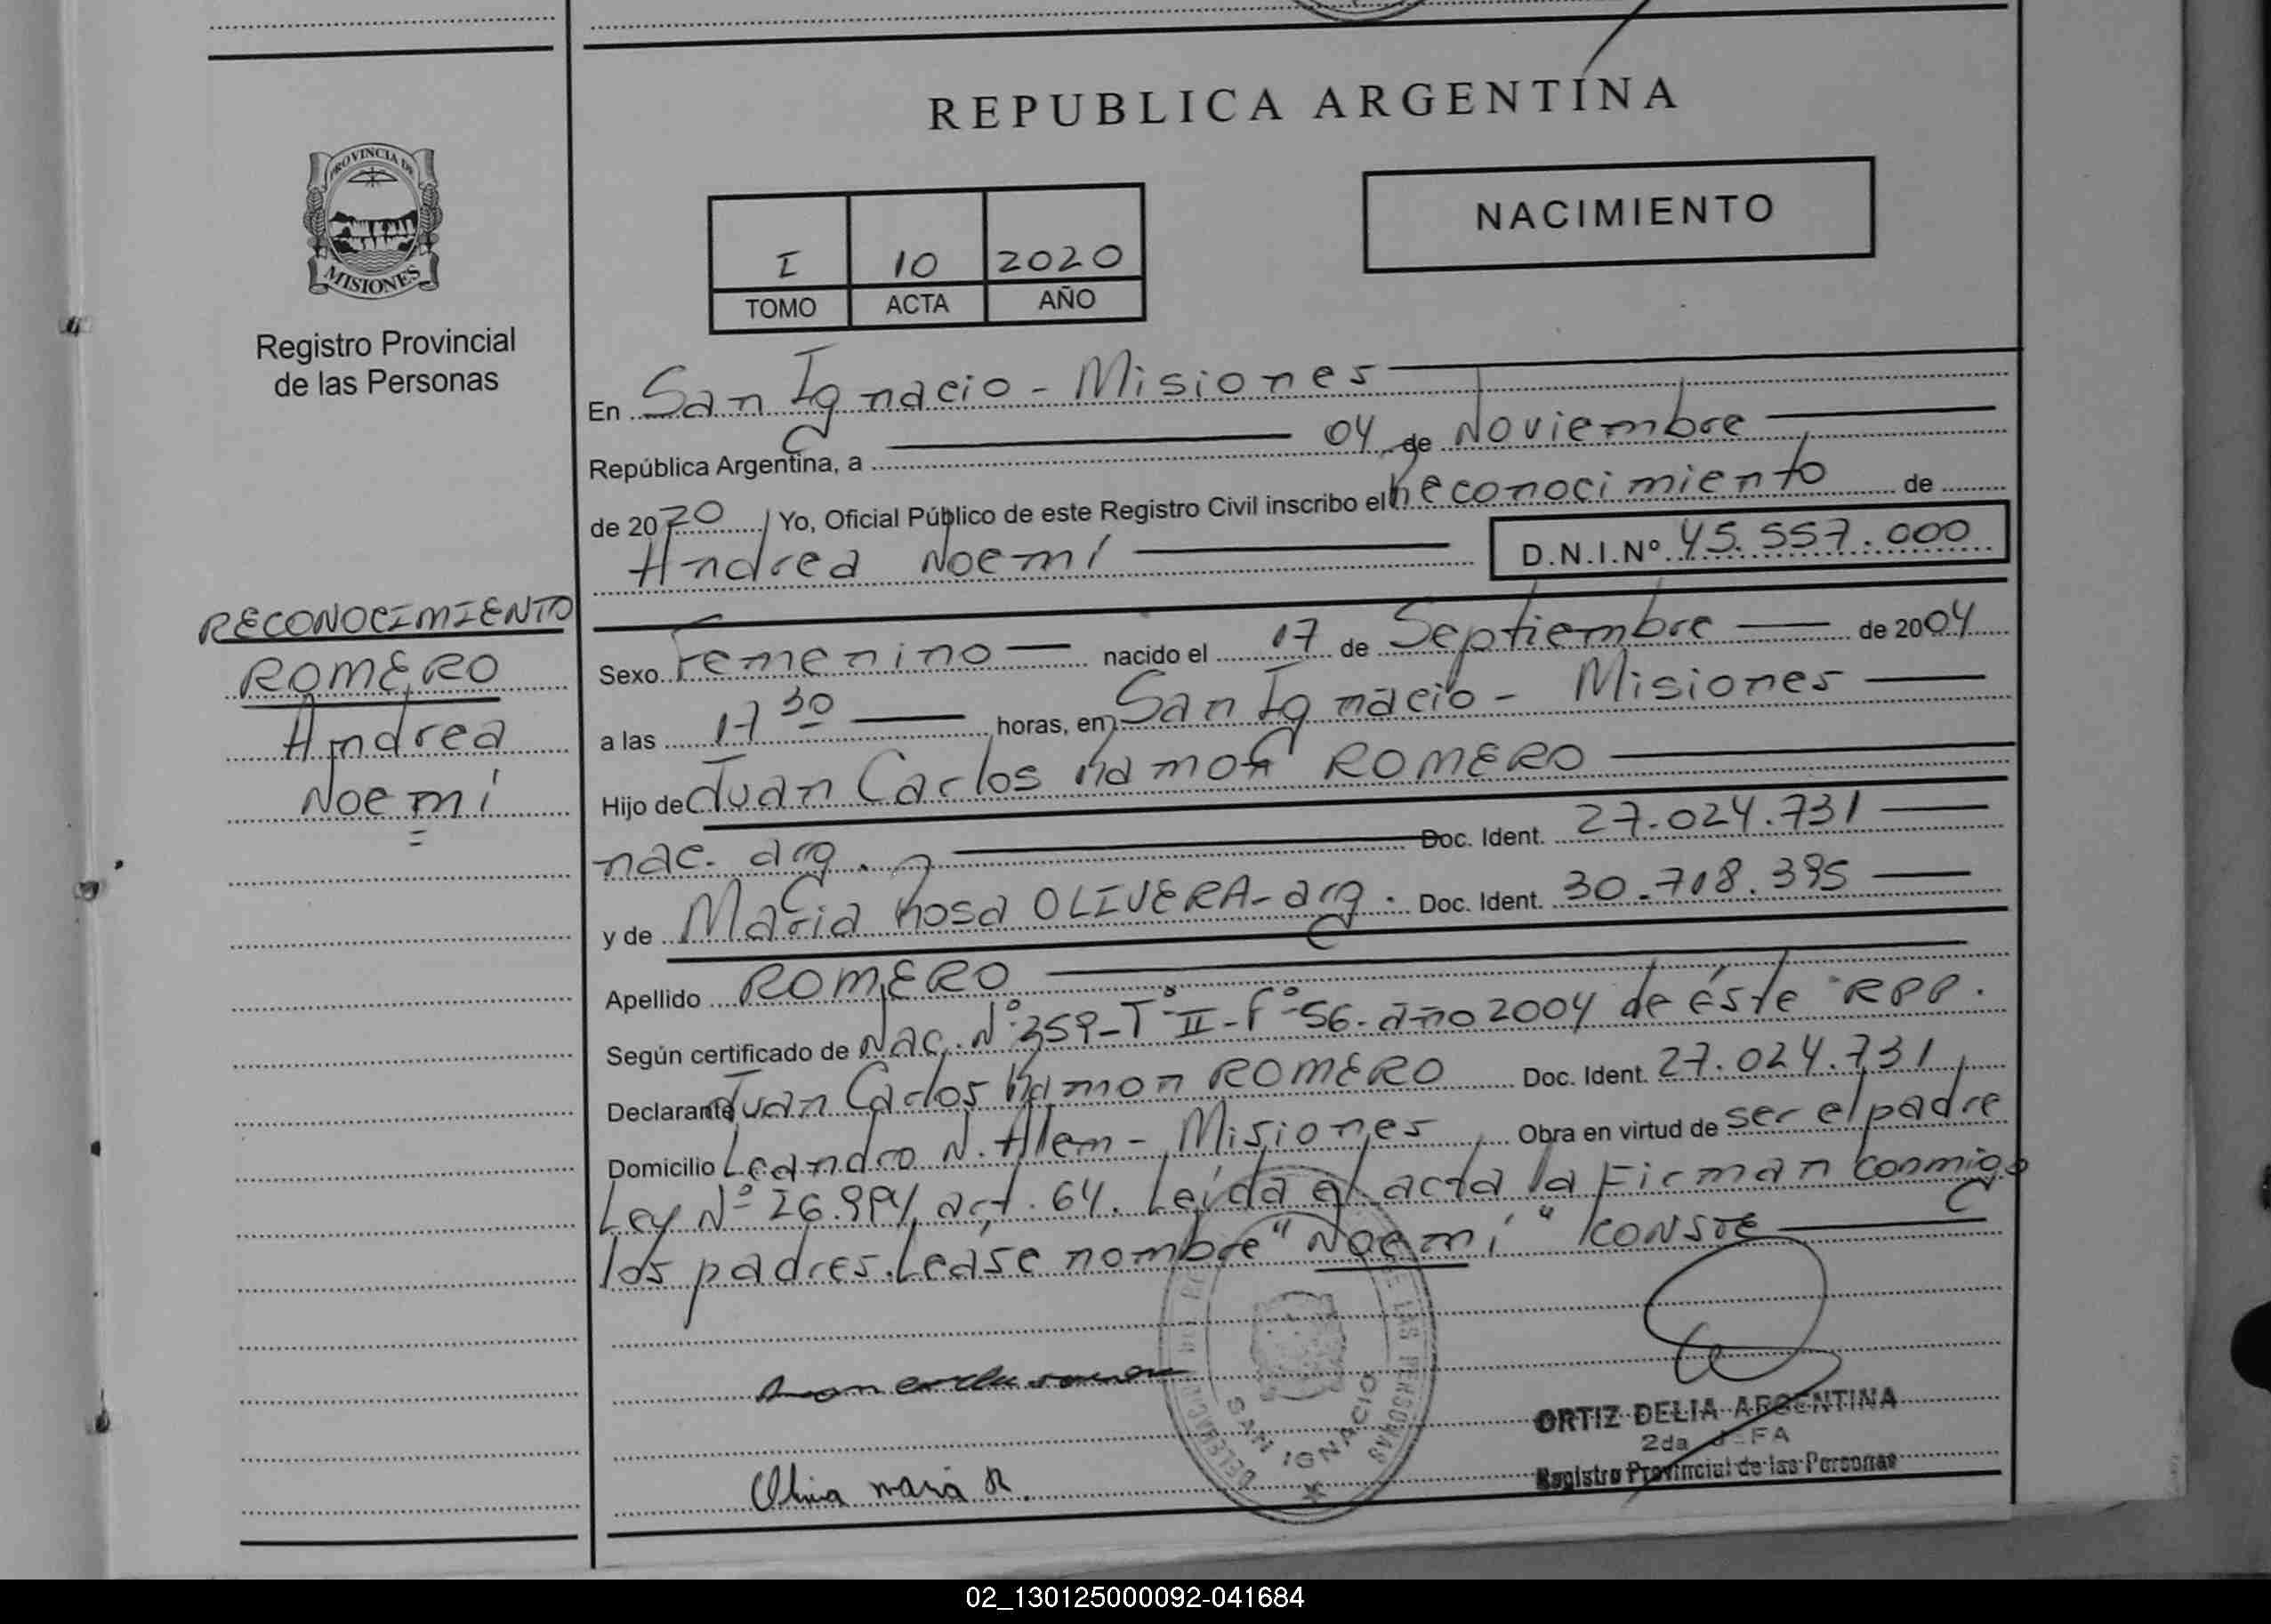 REPUBLICA ARGENTINA
PROVINCIA DE
MISIONES
Registro Provincial
de las Personas
NACIMIENTO
I 10 2020
TOMO ACTA AÑO
En San Ignacio - Misiones
República Argentina, a 04 de Noviembre
de 2020 Yo, Oficial Público de este Registro Civil inscribo el Reconocimiento de
Andrea Noemí D.N.I.Nº 45.557.000
RECONOCIMIENTO
ROMERO
Andrea
Noemí
Sexo Femenino nacido el 17 de Septiembre de 2004
a las 17 30 horas, en San Ignacio - Misiones
Hijo de Juan Carlos Ramon ROMERO
nac. arg. Doc. Ident. 27.024.731
y de Maria Rosa OLIVERA - arg. Doc. Ident. 30.708.395
Apellido ROMERO
Según certificado de Nac. Nº 359 - Tº II - Fº 56 - año 2004 de éste RPP.
Declarante Juan Carlos Ramon ROMERO Doc. Ident. 27.024.731
Domicilio Leandro N. Allem - Misiones Obra en virtud de ser el padre
Ley Nº 26.994, art. 64. Leída el acta la Firman conmigo
los padres. Lease nombre "Noemí" CONSTE
DE LAS PERSONAS
SAN IGNACIO
Olivia maria R.
ORTIZ DELIA ARGENTINA
2da JEFA
Registro Provincial de las Personas
02_130125000092-041684